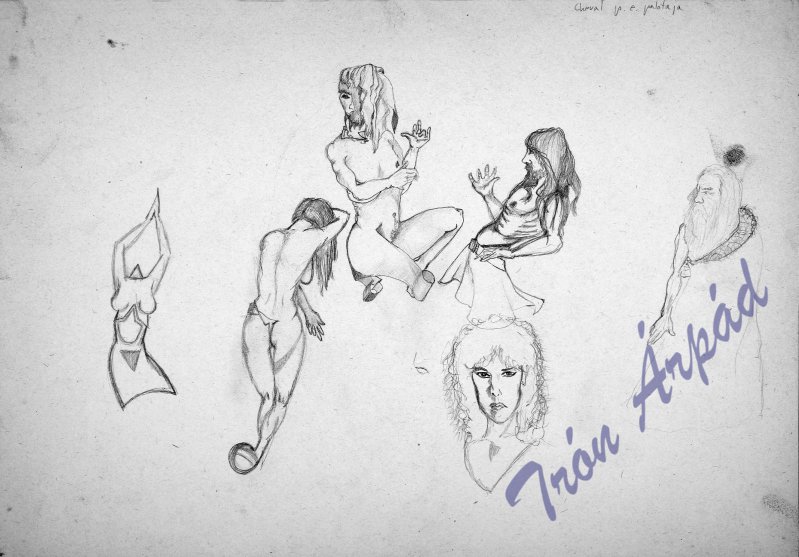 Cheval p. e. palotaja
Trón Árpád